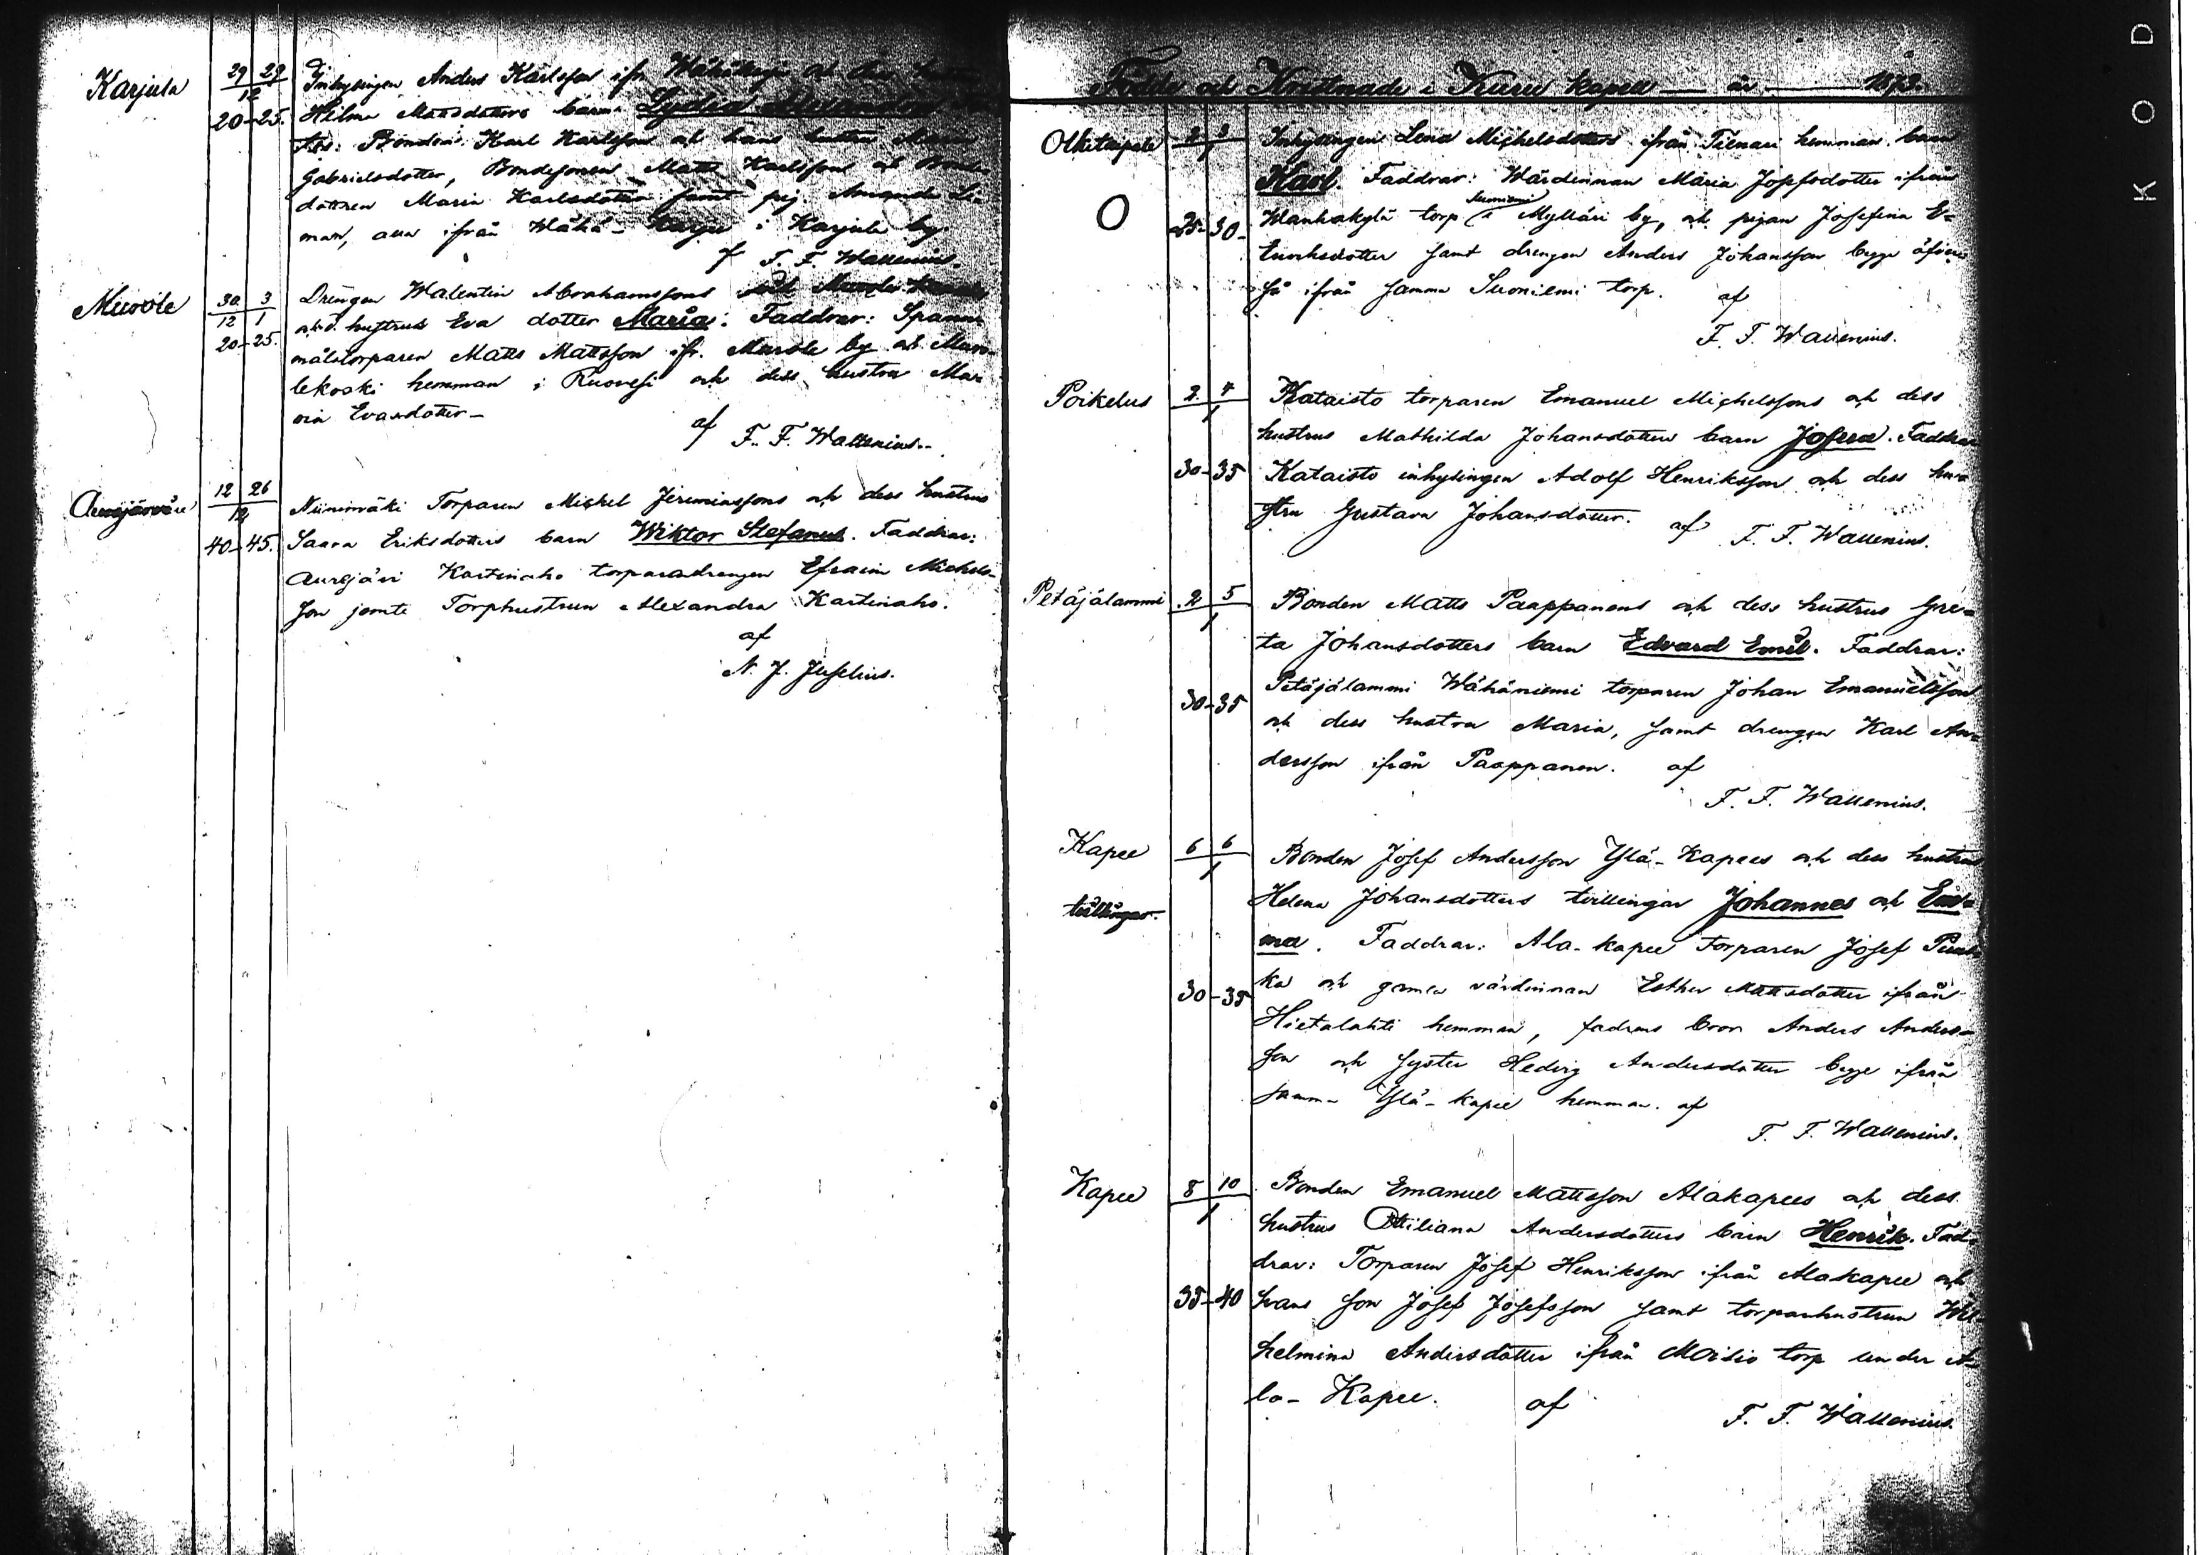 Karjula
29 29
12
20-25.
Inhysingen Anders Karlsson ifr.
Hilma Mattsdotters barn Lydia Alexandra
Karl Karlsson och hans
Gabrielsdotter, Bondesonen Matts Karlsson och Bonde
dottren Maria Karlsdotter samt pig. Amanda
man, alla ifrån Wähä-Karju i Karjula by
af F. F. Wallenius.
Murole
30 3
12 1
20-25.
Drengen Walentin Abrahamssons
och d. hustrus Eva dotter Maria. Faddrar: Spann-
målstorparen Matts Mattsson ifr. Murole by och Muro-
lekoski hemman i Ruovesi och dess hustru Ma-
ria Evasdotter-
af F. F. Wallenius.
Aurejärvi
12 26
12
40-45.
Niinimäki Torparen Michel Jeremiassons och dess hustrus
Saara Eriksdotters barn Wiktor Stefanus. Faddrar:
Aurejärvi torparedrengen Efraim Michels-
son jemte Torphustrun Alexandra
af
N. J. Juselius.
Födde och Kristnade i Kuru kapell år 1873.
Olkitaipale
2 3
1
25-30-
Inhysingen Lena Michelsdotters ifrån Tienari hemman barn
Karl. Faddrar: Wärdinnan Maria Josefsdotter ifrån
Suoniemi
Wanhakylä torp i Mylläri by, och pigan Josefina E-
nochsdotter samt drengen Anders Johansson begge äfven
så ifrån samma Suoniemi torp. af
F. F. Wallenius.
Poikelus
2 4
1
30-35
Kataisto torparen Emanuel Michelssons och dess
hustrus Mathilda Johansdotters barn Josua. Faddrar
Kataisto inhysingen Adolf Henriksson och dess hu-
stru Gustava Johansdotter. af F. F. Wallenius.
Petäjälammi
2 5
1
30-35
Bonden Matts Paappanens och dess hustrus Gre-
ta Johansdotters barn Edvard Emil. Faddrar:
Petäjälammi Wähäniemi torparen Johan Emanuelsson
och dess hustru Maria, samt drengen Karl An-
dersson ifrån Paappanen. af
F. F. Wallenius.
Kapee
tvillingar.
6 6
1
30-35
Bonden Josef Andersson Ylä-Kapees och dess hustrus
Helena Johansdotters tvillingar Johannes och Em-
ma. Faddrar: Ala-kapee Torparen Josef
ka och gamla värdinnan Esther Mattsdotter ifrån
Hietalahti hemman, fadrens bror Anders Anders-
son och syster Hedvig Andersdotter begge ifrån
samma Ylä-kapee hemman. af
F. F. Wallenius.
Kapee
8 10
1
35-40
Bonden Emanuel Mattsson Alakapees och dess
hustrus Ottiliana Andersdotters barn Henrik. Fad-
drar: Torparen Josef Henriksson ifrån Alakapee och
hans son Josef Josefsson samt torparhustrun Wil-
helmina Andersdotter ifrån Moisio torp under A-
la-Kapee. af
F. F. Wallenius.
KOD